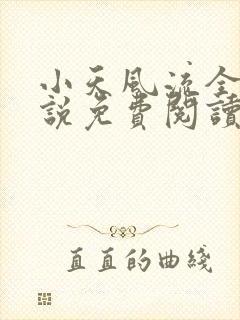 小天風流全
說免費閱讀
直直的曲綫